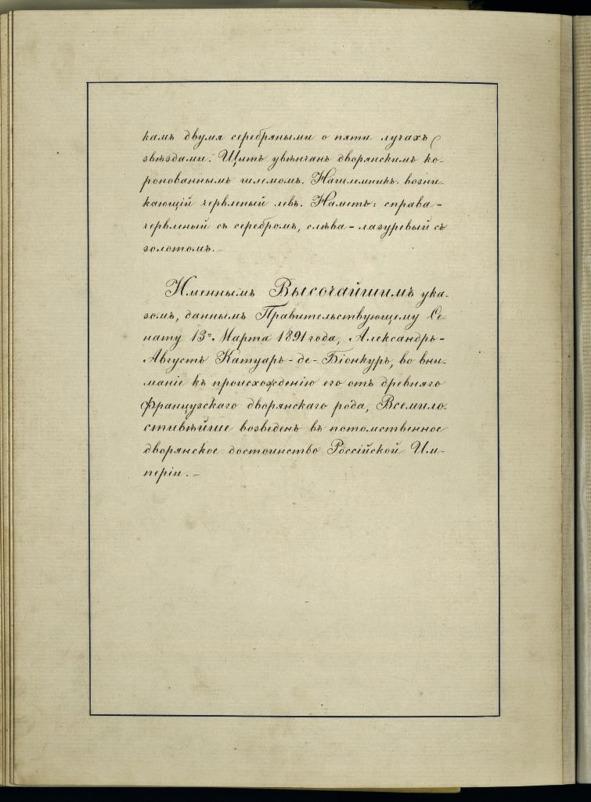 камъ двумя серебряными о пяти лучахъ
звѣздами. Щитъ увѣнчанъ дворянскимъ ко-
ронованнымъ шлемомъ. Нашлемникъ: возни-
кающій червленый левъ. Наметъ: справа -
червленый съ серебромъ, слѣва - лазуревый съ
золотомъ. -
Именнымъ Высочайшимъ ука-
зомъ, даннымъ Правительствующему Се-
нату 13го Марта 1891 года, Александръ-
Августъ Катуаръ-де-Біонкуръ, во вни-
маніе къ происхожденію его отъ древняго
Французскаго дворянскаго рода, Всемило-
стивѣйше возведенъ въ потомственное
дворянское достоинство Россійской Им-
періи. -